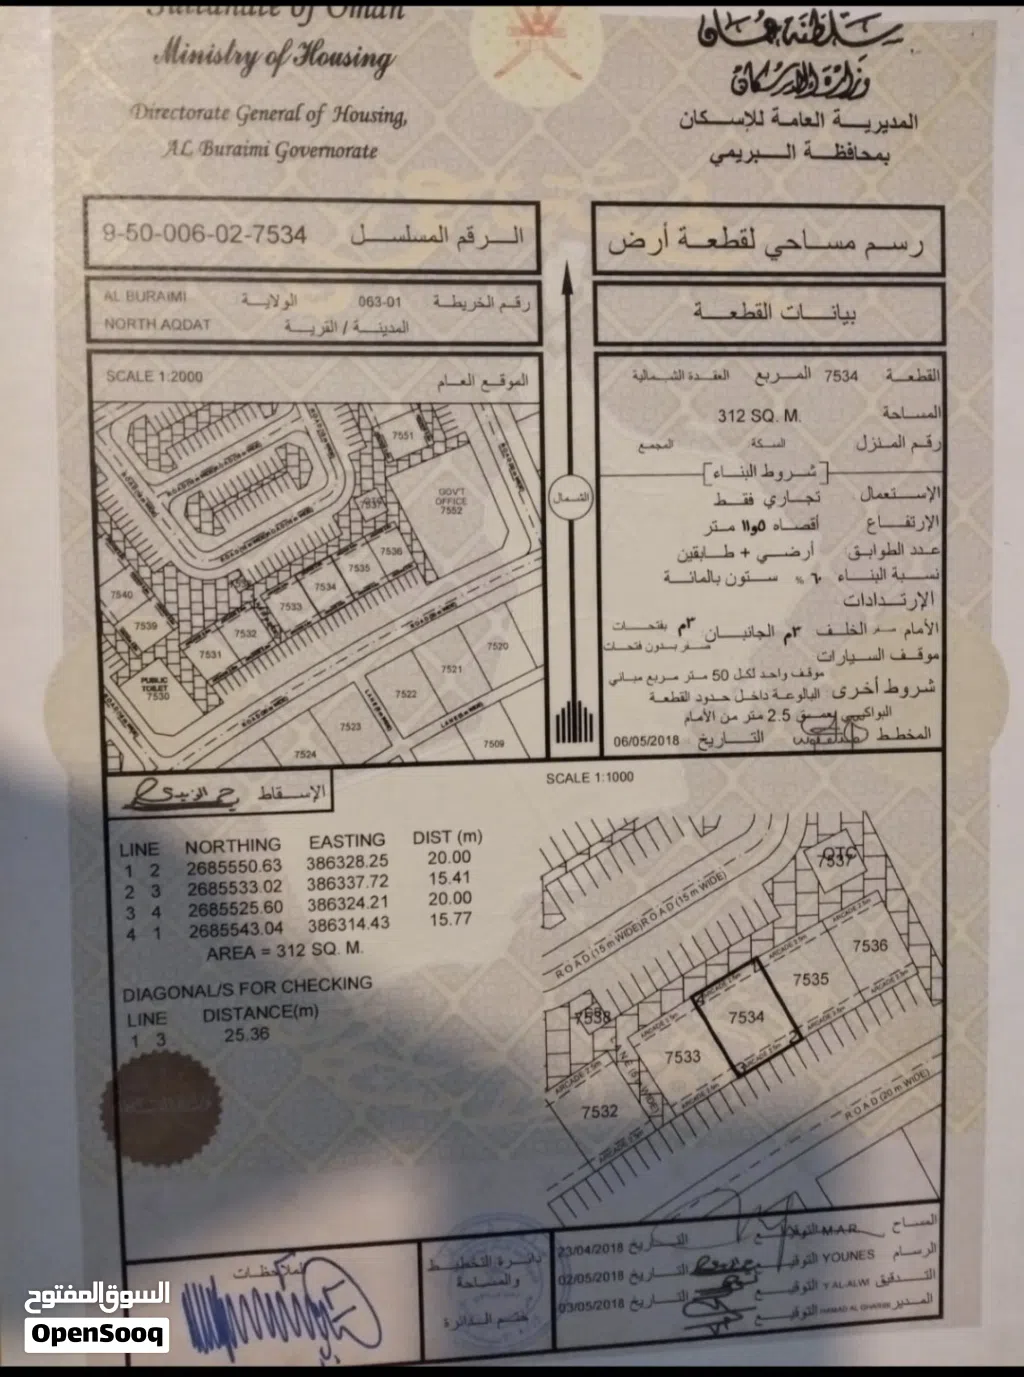 Sultanate of Oman
Ministry of Housing
Directorate General of Housing,
AL Buraimi Governorate
سلطنة عمان
وزارة الإسكان
المديرية العامة للإسكان
بمحافظة البريمي
الرقم المسلسل 9-50-006-02-7534
رسم مساحي لقطعة أرض
رقم الخريطة 063-01 الولاية AL BURAIMI
المدينة / القرية NORTH AQDAT
بيانات القطعة
SCALE 1:2000 الموقع العام
القطعة 7534 المربع العقدة الشمالية
المساحة 312 SQ. M.
رقم المنزل السكة المجمع
[شروط البناء]
الإستعمال تجاري فقط
الإرتفاع أقصاه ١١٫٥ متر
عدد الطوابق أرضي + طابقين
نسبة البناء ٦٠ % ستون بالمائة
الإرتدادات
الأمام صفر الخلف ٣م الجانبان ٣م بفتحات
صفر بدون فتحات
موقف السيارات موقف واحد لكل 50 متر مربع مباني
شروط أخرى البالوعة داخل حدود القطعة
البواكي بعمق 2.5 متر من الأمام
المخطط التاريخ 06/05/2018
الشمال
7551
GOV'T
OFFICE
7552
7537
7536
7535
7534
7533
7532
7531
7540
7539
PUBLIC
TOILET
7530
7520
7521
7522
7523
7524
7509
الإسقاط
SCALE 1:1000
LINE NORTHING EASTING DIST (m)
1 2 2685550.63 386328.25 20.00
2 3 2685533.02 386337.72 15.41
3 4 2685525.60 386324.21 20.00
4 1 2685543.04 386314.43 15.77
AREA = 312 SQ. M.
DIAGONAL/S FOR CHECKING
LINE DISTANCE(m)
1 3 25.36
OTC
7537
ROAD (15 m WIDE) ROAD (15 m WIDE)
ARCADE 2.5m
7536
7535
7534
7533
7538
7532
ROAD (20 m WIDE)
المساح M.A.R التوقيع التاريخ 23/04/2018
الرسام YOUNES التوقيع التاريخ 02/05/2018
التدقيق Y.AL-ALWI التوقيع التاريخ 03/05/2018
المدير HAMAD AL GHARIBI التوقيع
دائرة التخطيط
والمساحة
ختم الدائرة
الملاحظات
السوق المفتوح
OpenSooq